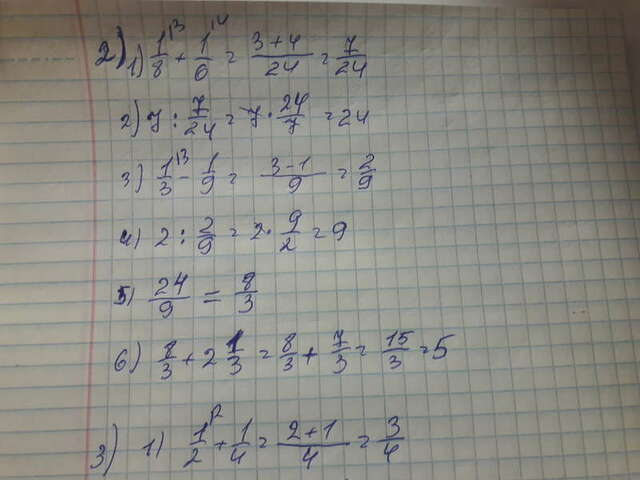 2) 1) 1/8 \3 + 1/6 \4 = 3+4/24 = 7/24
2) 7 : 7/24 = 7 · 24/7 = 24
3) 1/3 \3 - 1/9 = 3-1/9 = 2/9
4) 2 : 2/9 = 2 · 9/2 = 9
5) 24/9 = 8/3
6) 8/3 + 2 1/3 = 8/3 + 7/3 = 15/3 = 5
3) 1) 1/2 \2 + 1/4 = 2+1/4 = 3/4